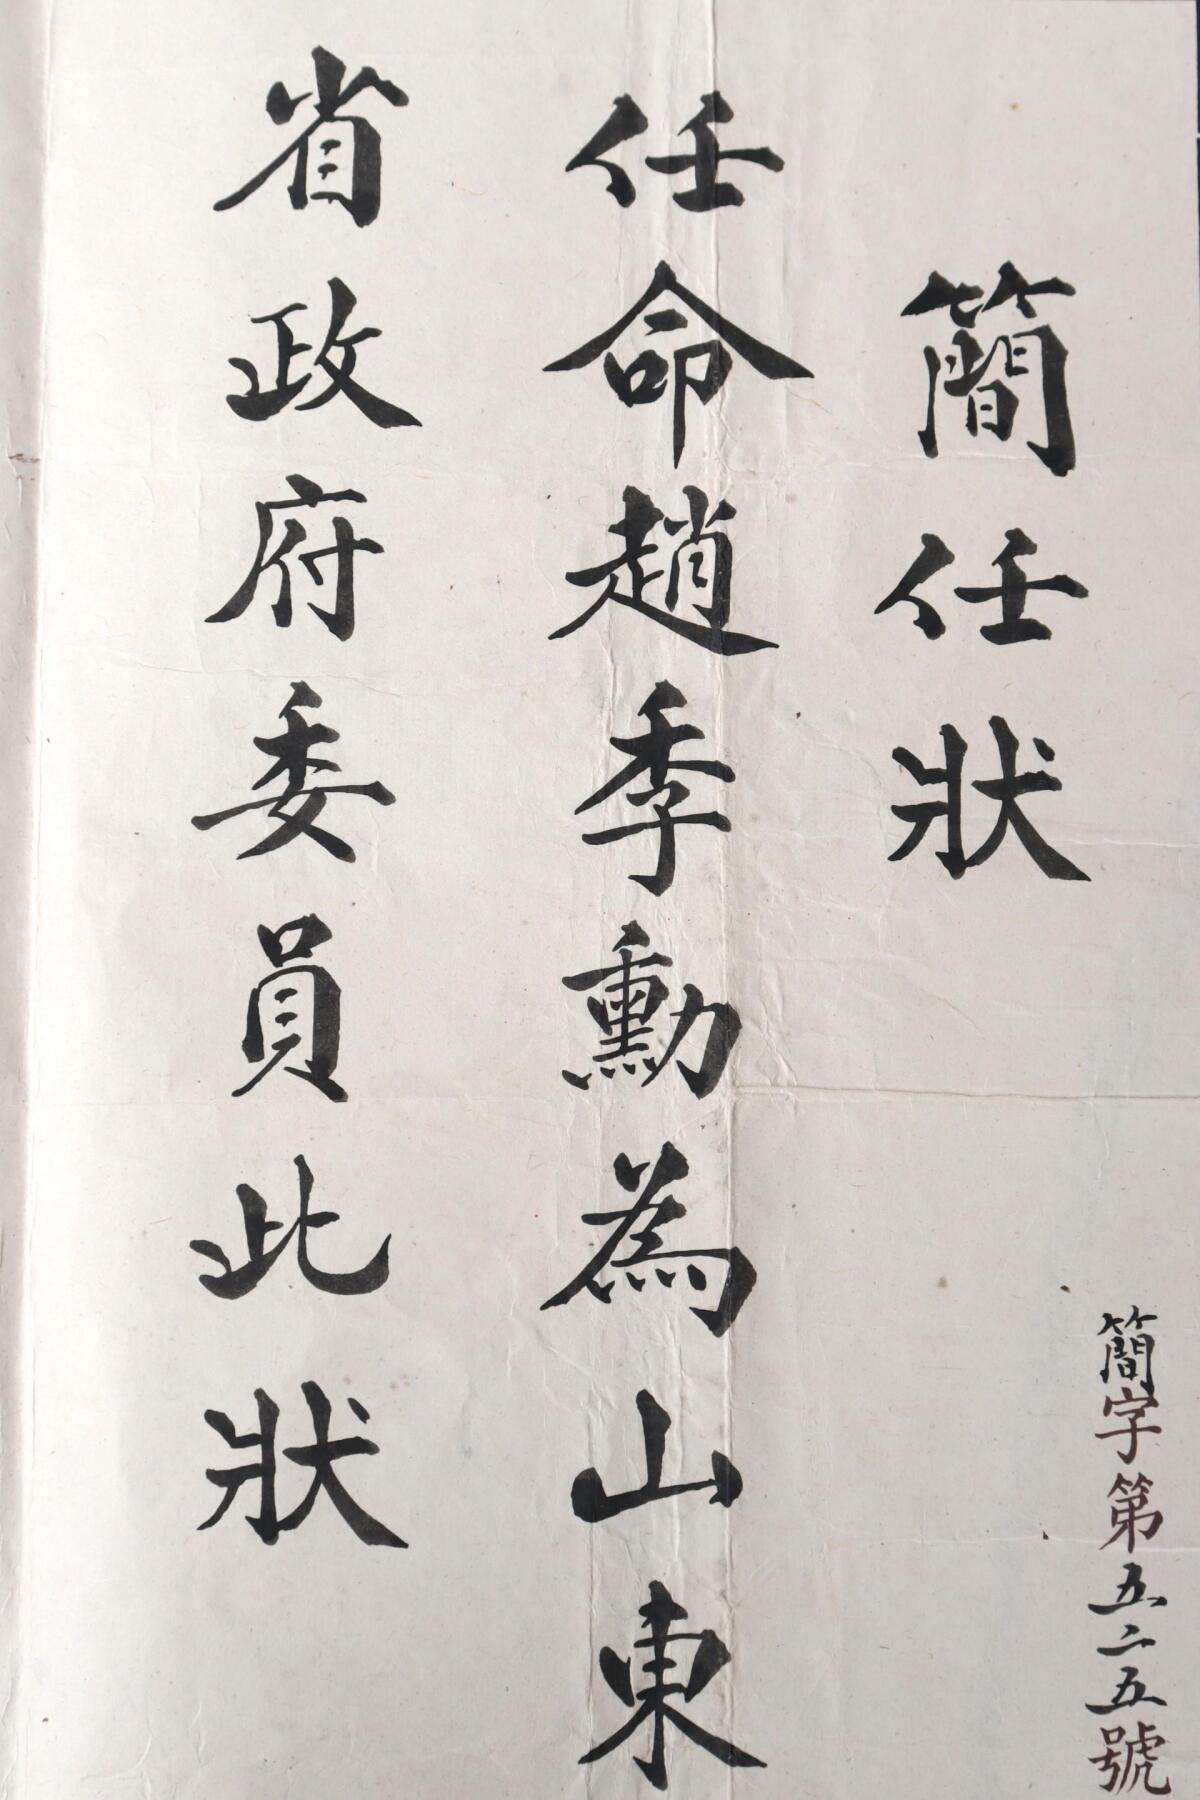 簡字第五二五號
簡任狀
任命趙季勳為山東
省政府委員此狀